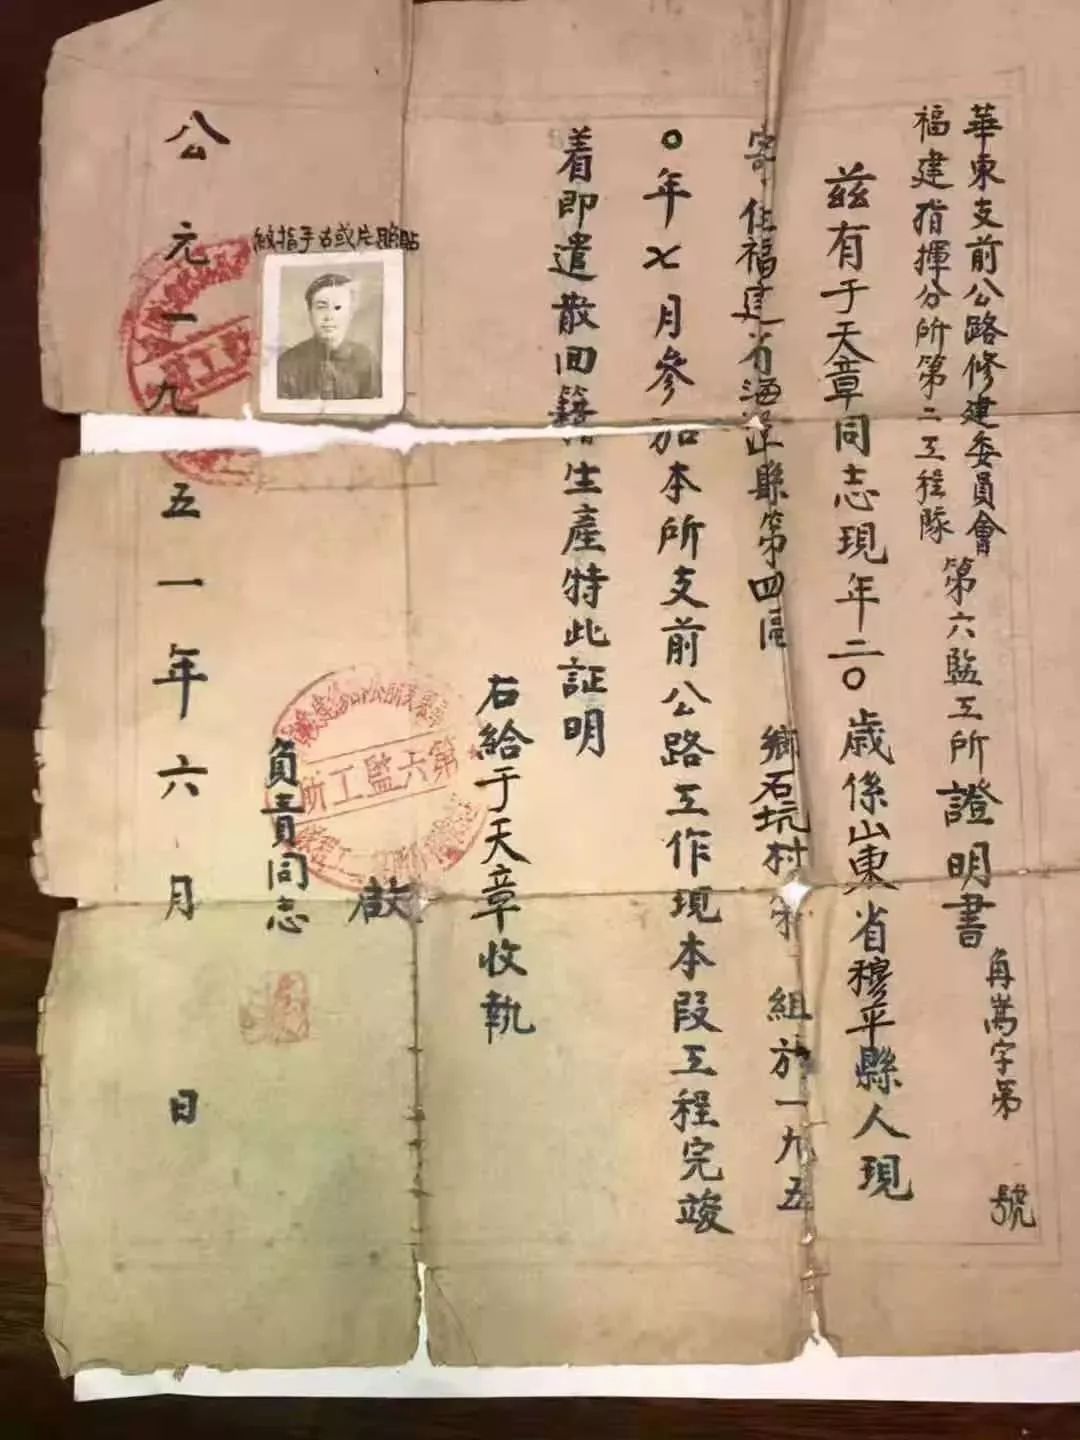 華東支前公路修建委員會
福建指揮分所第二工程隊
第六監工所證明書
字第 號
茲有于天章同志現年二〇歲係山東省穆平縣人現
寄住福建省 縣第四區 鄉石坑村第 組於一九五
〇年七月參加本所支前公路工作現本段工程完竣
着即遣散回籍生產特此証明
右給于天章收執
啟
負責同志
貼照片或右手指紋
第六監工所
公元一九五一年六月 日